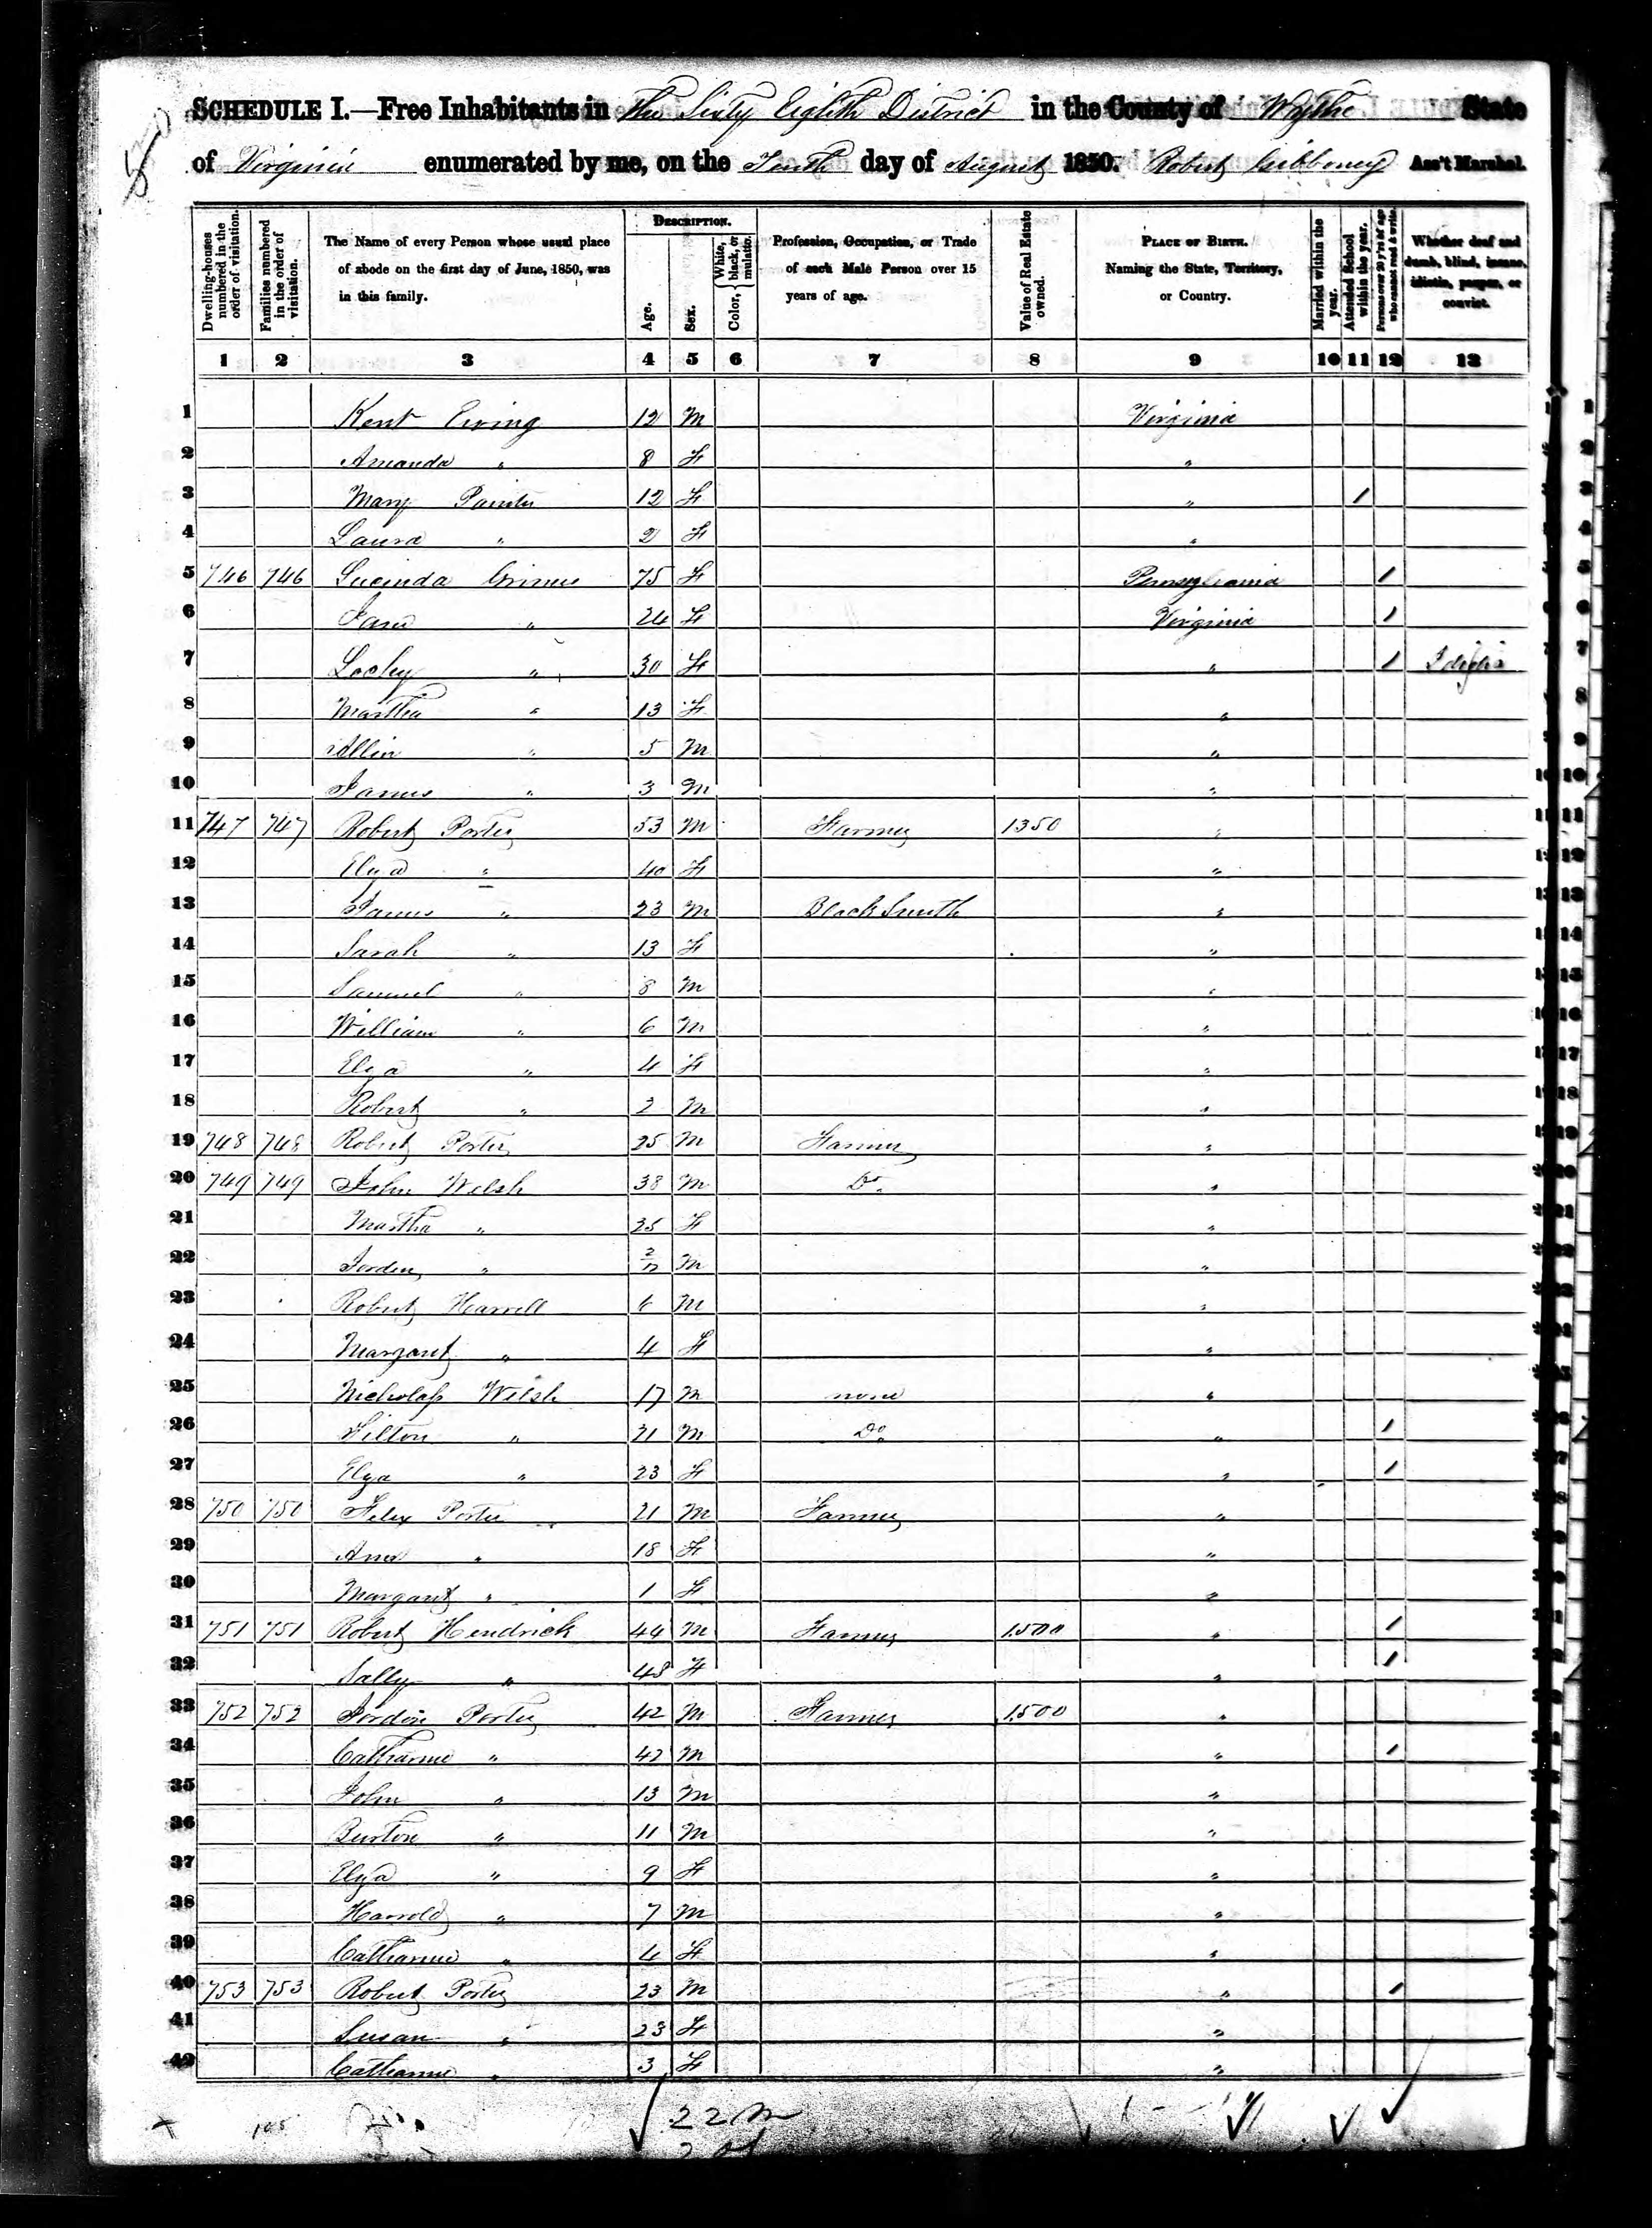 SCHEDULE I.—Free Inhabitants in The Sixty Eighth District in the County of Wythe State
of Virginia enumerated by me, on the Tenth day of August 1850. Robert Gibboney Ass't Marshal.
Dwelling-houses numbered in the order of visitation.
Families numbered in the order of visitation.
The Name of every Person whose usual place of abode on the first day of June, 1850, was in this family.
DESCRIPTION.
Age.
Sex.
Color, { White, black, or mulatto.
Profession, Occupation, or Trade of each Male Person over 15 years of age.
Value of Real Estate owned.
PLACE OF BIRTH. Naming the State, Territory, or Country.
Married within the year.
Attended School within the year.
Persons over 20 y'rs of age who cannot read & write.
Whether deaf and dumb, blind, insane, idiotic, pauper, or convict.
1 2 3 4 5 6 7 8 9 10 11 12 13
1 Kent Ewing 12 M Virginia 1
2 Amanda " 8 F " 2
3 Mary Painter 12 F " 1 3
4 Laura " 2 F " 4
5 746 746 Lucinda Grimes 75 F Pennsylvania 1 5
6 Jane " 24 F Virginia 1 6
7 " 30 F " 1 7
8 Martha " 13 F " 8
9 Allin " 5 M " 9
10 James " 3 M " 10
11 747 747 Robert Porter 53 M Farmer 1350 " 11
12 Elza " 40 F " 12
13 James " 23 M Black Smith " 13
14 Sarah " 13 F " 14
15 Samuel " 8 M " 15
16 William " 6 M " 16
17 Elza " 4 F " 17
18 Robert " 2 M " 18
19 748 748 Robert Porter 25 M Farmer " 19
20 749 749 John Welsh 38 M Do. " 20
21 Martha " 25 F " 21
22 Jorden " 2/12 M "
23 Robert Harrell 6 M "
24 Margaret " 4 F "
25 Nicholass Welsh 17 M none "
26 " 21 M Do. " 1
27 Elza " 23 F " 1
28 750 750 Felix Porter 21 M Farmer "
29 Ann " 18 F "
30 Margaret " 1 F "
31 751 751 Robert Hendrick 44 M Farmer 1500 " 1
32 Sally " 48 F " 1
33 752 752 Jorden Porter 42 M Farmer 1500 "
34 Catharine " 42 M " 1
35 John " 13 M "
36 Burton " 11 M "
37 Elza " 9 F "
38 Harrold " 7 M "
39 Catharine " 4 F "
40 753 753 Robert Porter 23 M " 1
41 Susan " 23 F "
42 Catharine " 3 F "
22 M